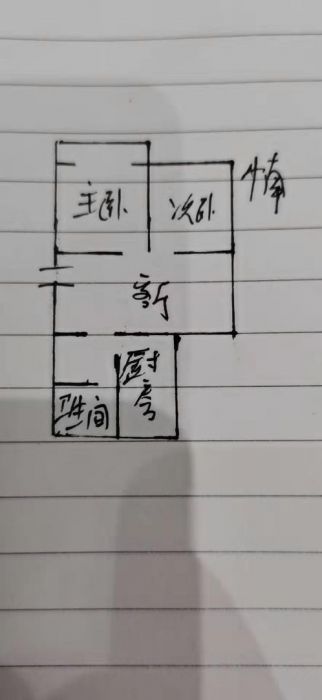 主卧
次卧
南
客厅
厨
卫生间